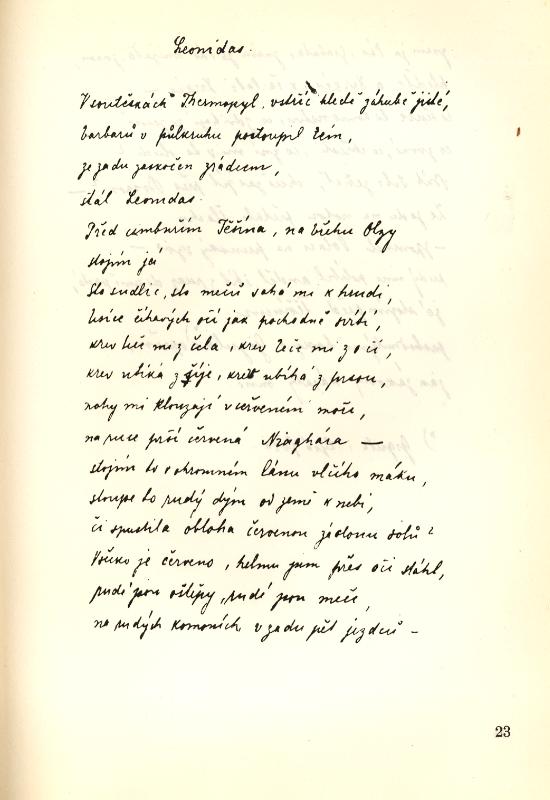 Leonidas.
V soutěskách Thermopyl, vstříc hledě záhubě jisté,
barbarů v půlkruhu postoupil lem,
ze zadu zaskočen zrádcem,
stál Leonidas.
Před cimbuřím Těšína, na břehu Olzy
stojím já
Sto sudlic, sto mečů sahá mi k hrudi,
tisíce číhavých očí jak pochodně svítí,
krev teče mi z čela, krev teče mi z očí,
krev utíká z šíje, krev ubíhá z prsou,
nohy mi kloužají v červeném moři,
na ruce prší červená Niaghára —
stojím to v ohromném lánu vlčího máku,
stoupe to rudý dým od země k nebi,
či spustila obloha červenou záclonu dolů?
Všecko je červeno, helmu jsem přes oči stáhl,
rudé jsou oštěpy, rudé jsou meče,
na rudých komoních vzadu pět jezdců —
23